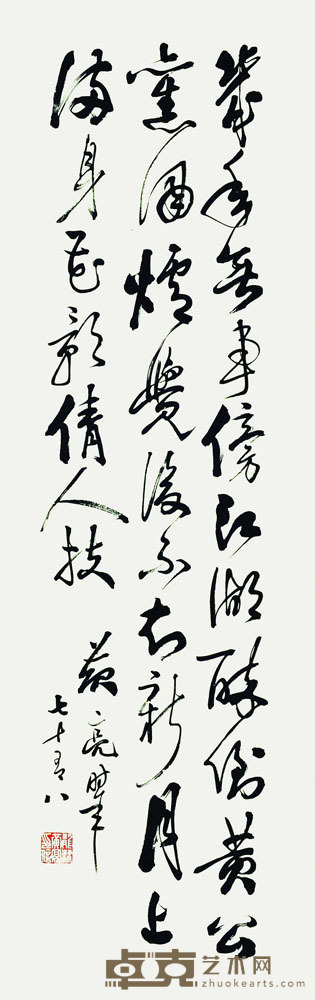 幾年無事傍江湖醉倒黃公
舊酒爐覺後不知新月上
滿身花影倩人扶
亮時年
七十有八
卓克艺术网
zhuokearts.com